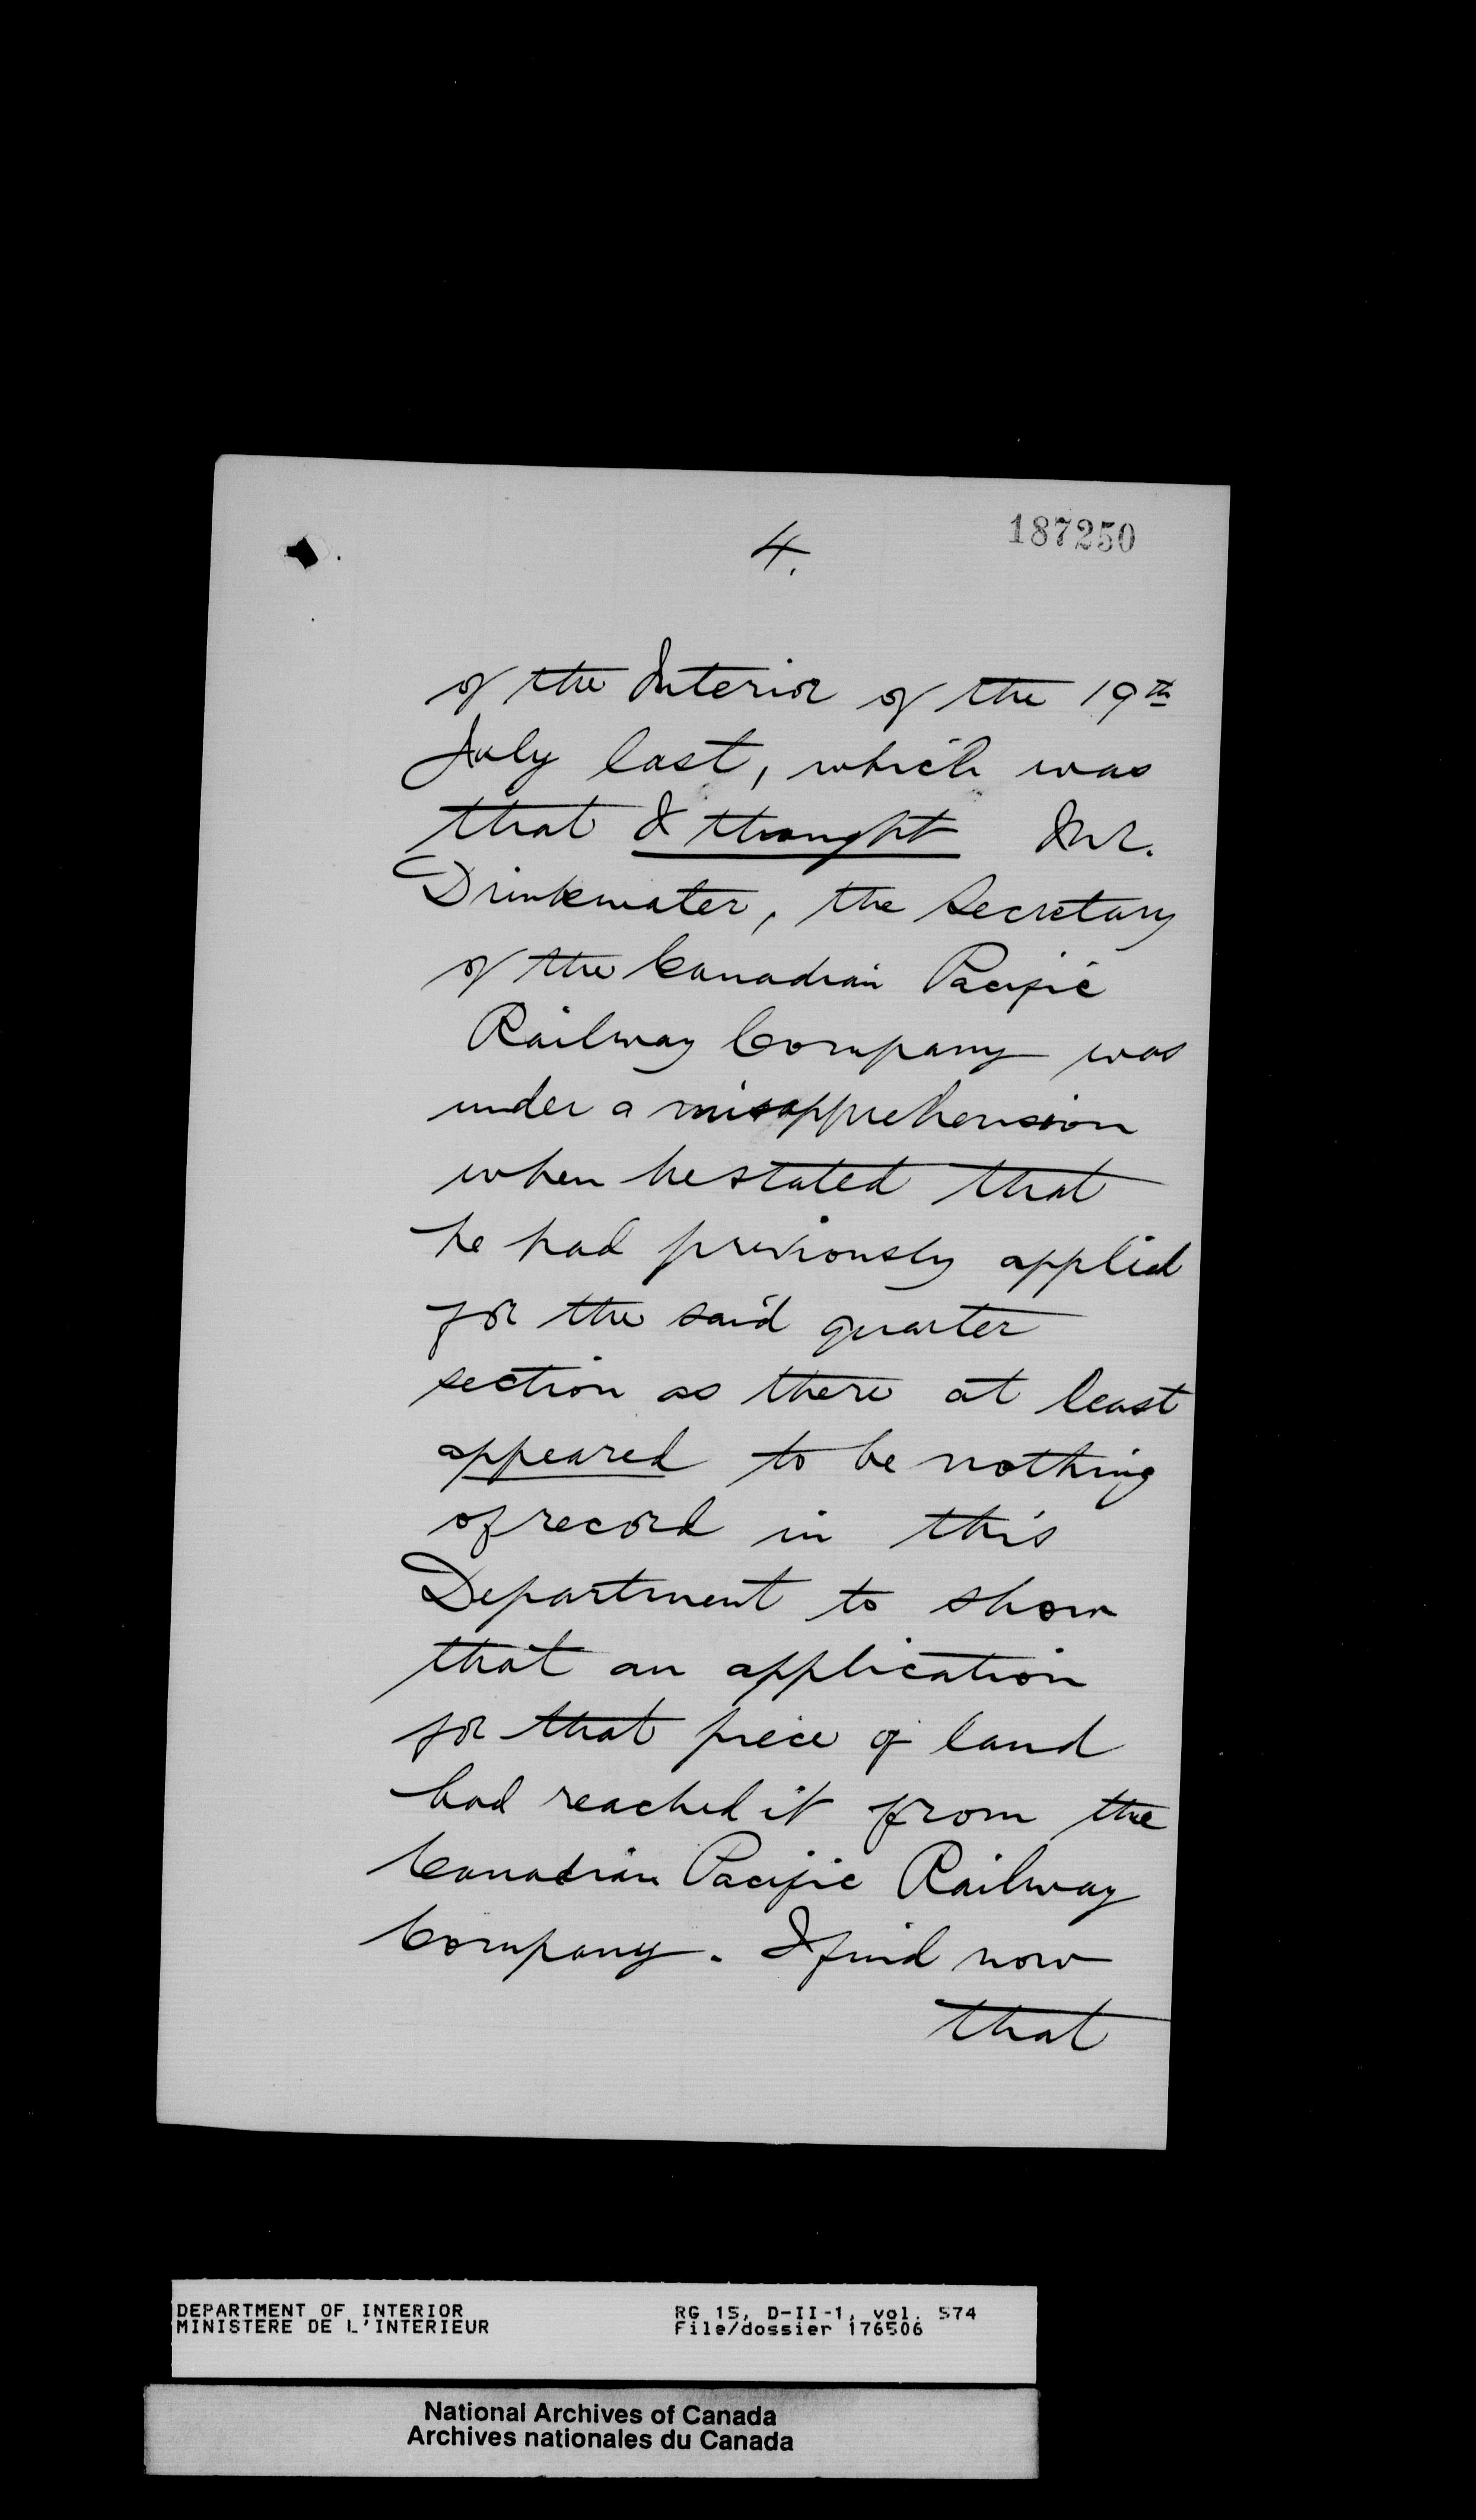 187250
4.
of the Interior of the 19th
July last, which was
that I thought Mr.
Drinkwater, the Secretary
of the Canadian Pacific
Railway Company was
under a misapprehension
when he stated that
he had previously applied
for the said quarter
section as there at least
appeared to be nothing
of record in this
Department to show
that an application
for that piece of land
had reached it from the
Canadian Pacific Railway
Company. I find now
that
DEPARTMENT OF INTERIOR
MINISTERE DE L'INTERIEUR
RG 15, D-II-1, vol. 574
File/dossier 176506
National Archives of Canada
Archives nationales du Canada